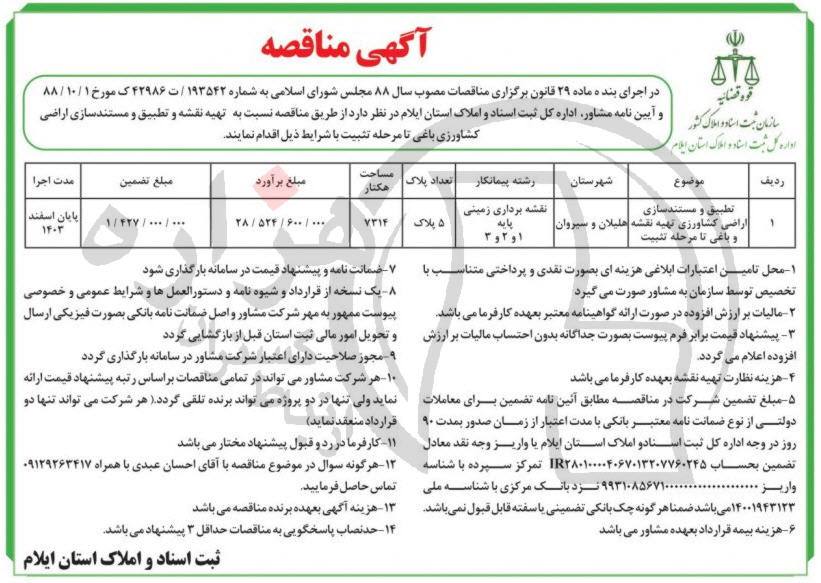 آگهی مناقصه
قوه قضائیه
سازمان ثبت اسناد و املاک کشور
اداره کل ثبت اسناد و املاک استان ایلام
در اجرای بند ه ماده ۲۹ قانون برگزاری مناقصات مصوب سال ۸۸ مجلس شورای اسلامی به شماره ۱۹۳۵۴۲ / ت ۴۲۹۸۶ ک مورخ ۱ / ۱۰ / ۸۸
و آیین نامه مشاور، اداره کل ثبت اسناد و املاک استان ایلام در نظر دارد از طریق مناقصه نسبت به تهیه نقشه و تطبیق و مستندسازی اراضی
کشاورزی باغی تا مرحله تثبیت با شرایط ذیل اقدام نمایند.
ردیف موضوع شهرستان رشته پیمانکار تعداد پلاک مساحت هکتار مبلغ برآورد مبلغ تضمین مدت اجرا
۱ تطبیق و مستندسازی اراضی کشاورزی تهیه نقشه و باغی تا مرحله تثبیت هلیلان و سیروان نقشه برداری زمینی پایه ۱ و ۲ و ۳ ۵ پلاک ۷۳۱۴ ۲۸ / ۵۲۴ / ۶۰۰ / ۰۰۰ ۱ / ۴۲۷ / ۰۰۰ / ۰۰۰ پایان اسفند ۱۴۰۳
۱-محل تامین اعتبارات ابلاغی هزینه ای بصورت نقدی و پرداختی متناسب با
تخصیص توسط سازمان به مشاور صورت می گیرد
۲-مالیات بر ارزش افزوده در صورت ارائه گواهینامه معتبر بعهده کارفرما می باشد.
۳- پیشنهاد قیمت برابر فرم پیوست بصورت جداگانه بدون احتساب مالیات بر ارزش
افزوده اعلام می گردد.
۴-هزینه نظارت تهیه نقشه بعهده کارفرما می باشد
۵-مبلغ تضمین شرکت در مناقصه مطابق آئین نامه تضمین برای معاملات
دولتی از نوع ضمانت نامه معتبر بانکی با مدت اعتبار از زمان صدور بمدت ۹۰
روز در وجه اداره کل ثبت اسناد و املاک استان ایلام یا واریز وجه نقد معادل
تضمین بحساب IR۲۸۰۱۰۰۰۰۴۰۶۷۰۱۳۲۰۷۷۶۰۲۴۵ تمرکز سپرده با شناسه
واریز نزد بانک مرکزی با شناسه ملی
۱۴۰۰۱۹۴۳۱۲۳می باشد ضمنا هر گونه چک بانکی تضمینی یا سفته قابل قبول نمی باشد.
۶-هزینه بیمه قرارداد بعهده مشاور می باشد
۷-ضمانت نامه و پیشنهاد قیمت در سامانه بارگذاری شود
۸-یک نسخه از قرارداد و شیوه نامه و دستورالعمل ها و شرایط عمومی و خصوصی
پیوست ممهور به مهر شرکت مشاور و اصل ضمانت نامه بانکی بصورت فیزیکی ارسال
و تحویل امور مالی ثبت استان قبل از بازگشایی گردد
۹-مجوز صلاحیت دارای اعتبار شرکت مشاور در سامانه بارگذاری گردد
۱۰-هر شرکت مشاور می تواند در تمامی مناقصات براساس رتبه پیشنهاد قیمت ارائه
نماید ولی تنها در دو پروژه می تواند برنده تلقی گردد.( هر شرکت می تواند تنها دو
قرارداد منعقد نماید)
۱۱-کارفرما در رد و قبول پیشنهاد مختار می باشد
۱۲-هرگونه سوال در موضوع مناقصه با آقای احسان عبدی با همراه ۰۹۱۲۹۲۶۳۴۱۷
تماس حاصل فرمایید.
۱۳-هزینه آگهی بعهده برنده مناقصه می باشد
۱۴-حدنصاب پاسخگویی به مناقصات حداقل ۳ پیشنهاد می باشد.
ثبت اسناد و املاک استان ایلام
هزاره